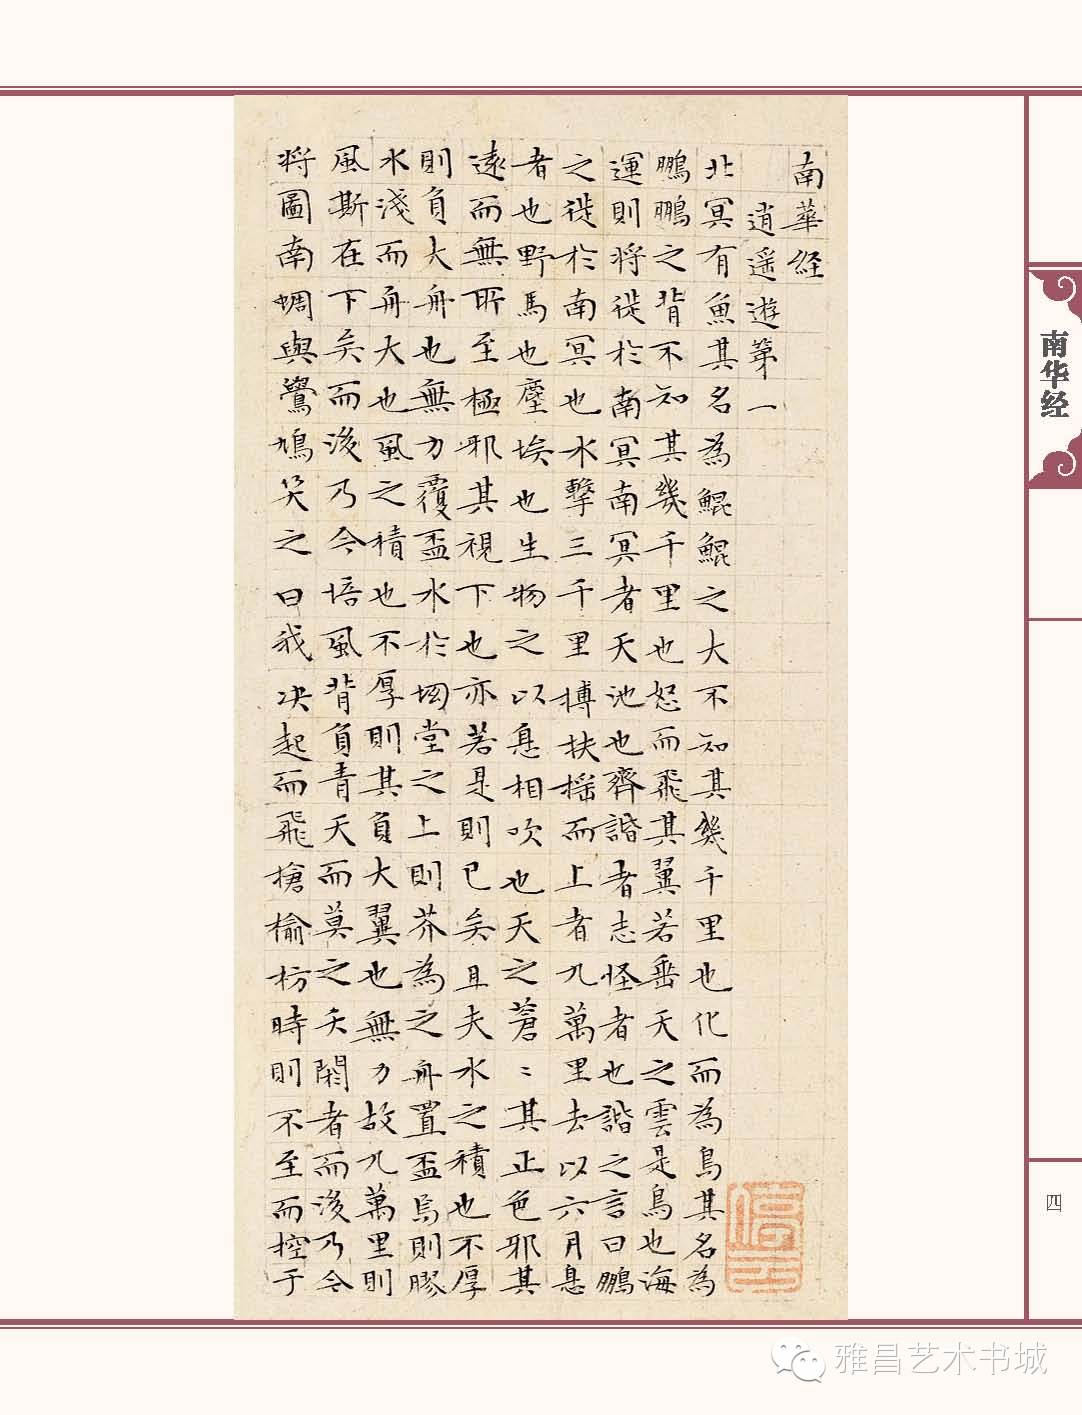 南華經
逍遥遊第一
北冥有魚其名為鯤鯤之大不知其幾千里也化而為鳥其名為
鵬鵬之背不知其幾千里也怒而飛其翼若垂天之雲是鳥也海
運則将徙於南冥南冥者天池也齊諧者志怪者也諧之言曰鵬
之徙於南冥也水擊三千里搏扶摇而上者九萬里去以六月息
者也野馬也塵埃也生物之以息相吹也天之蒼〻其正色邪其
遠而無所至極邪其視下也亦若是則已矣且夫水之積也不厚
則負大舟也無力覆盃水於坳堂之上則芥為之舟置盃焉則膠
水淺而舟大也風之積也不厚則其負大翼也無力故九萬里則
風斯在下矣而後乃今培風背負青天而莫之夭閼者而後乃今
将圖南蜩與鷽鳩笑之曰我决起而飛搶榆枋時則不至而控于
停云
南华经
四
雅昌艺术书城